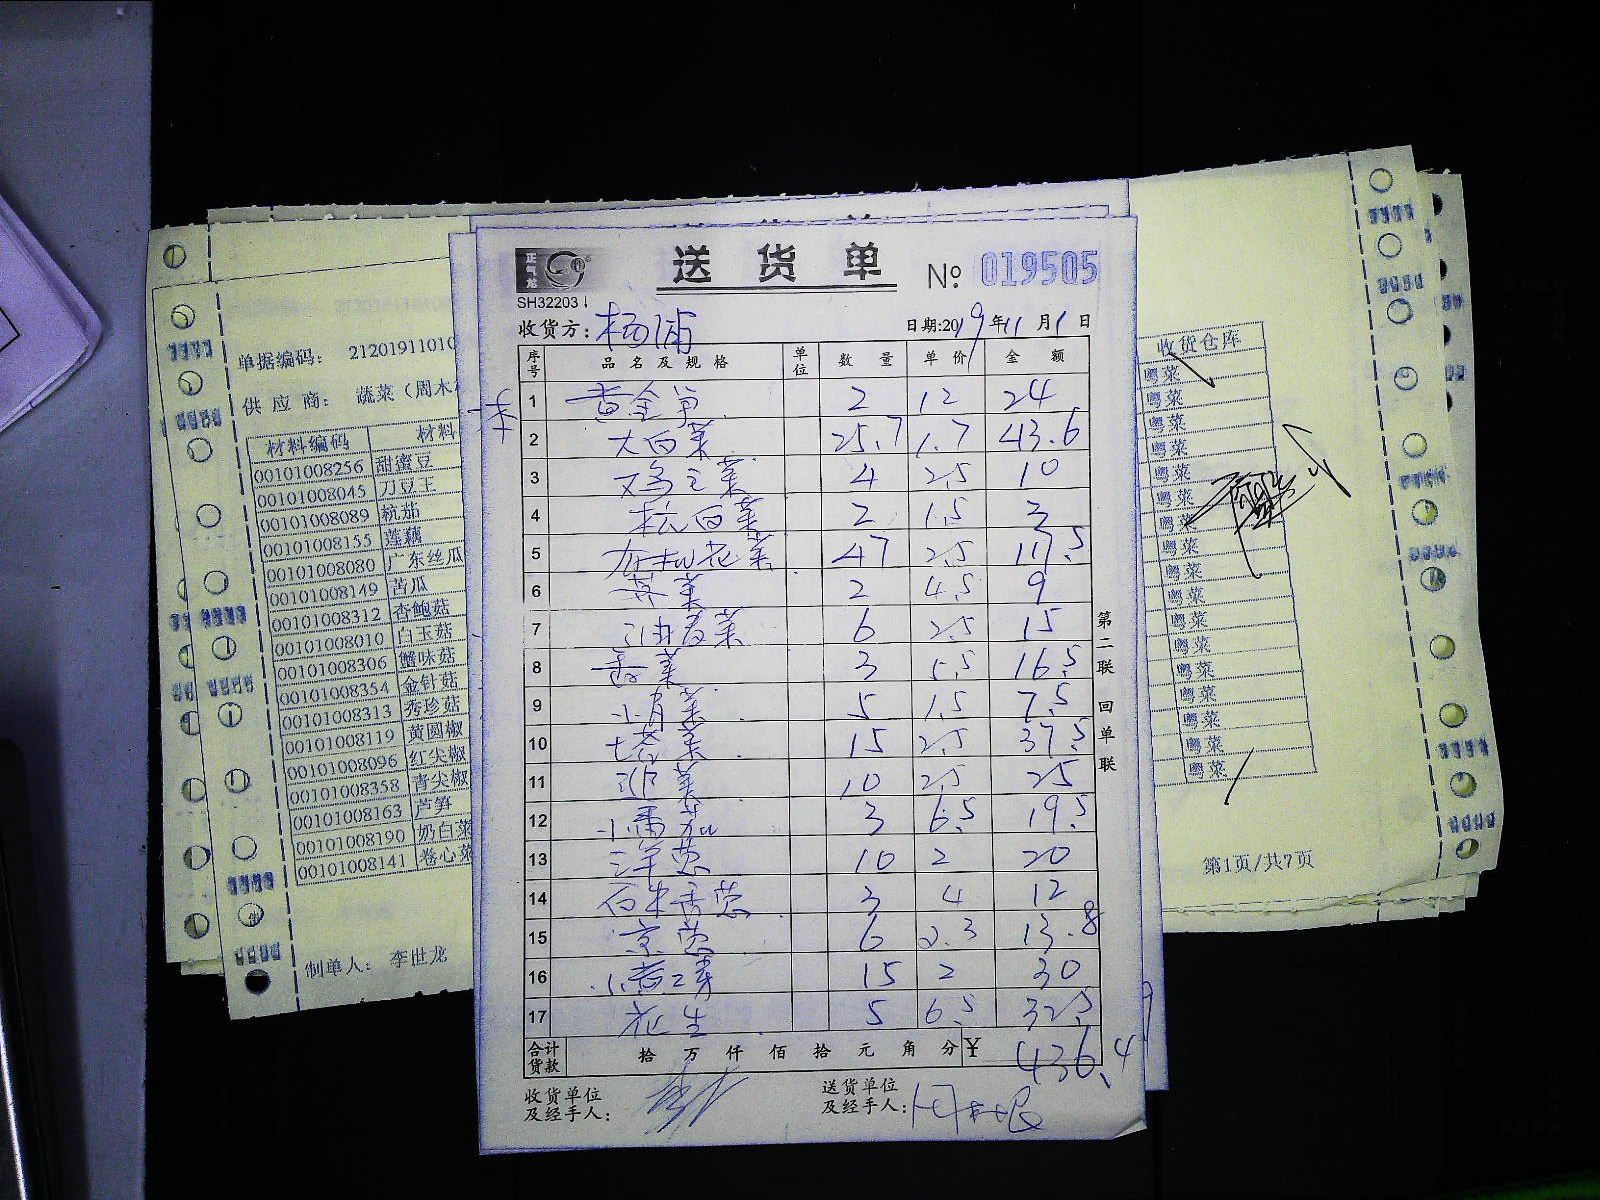 正气龙
送 货 单 № 019505
SH32203
收货方: 杨浦 日期:2019年11月1日
序号 品名及规格 单位 数量 单价 金额
1 黄金笋 2 12 24
2 大白菜 25.7 1.7 43.6
3 鸡毛菜 4 2.5 10
4 杭白菜 2 1.5 3
5 有机花菜 47 2.5 117.5
6 芥菜 2 4.5 9
7 油麦菜 6 2.5 15
8 香菜 3 5.5 16.5
9 小白菜 5 1.5 7.5
10 塔菜 15 2.5 37.5
11 菜 10 2.5 25
12 小番茄 3 6.5 19.5
13 洋葱 10 2 20
14 香葱 3 4 12
15 京葱 6 2.3 13.8
16 小黄 15 2 30
17 花生 5 6.5 32.5
合计货款 拾 万 仟 佰 拾 元 角 分 ¥ 436.4
收货单位及经手人:
送货单位及经手人:
第二联回单联
单据编码: 212019110
供应商: 蔬菜(周木
材料编码 材料
00101008256 甜蜜豆
00101008045 刀豆王
00101008089 杭茄
00101008155 莲藕
00101008080 广东丝瓜
00101008149 苦瓜
00101008312 杏鲍菇
00101008010 白玉菇
00101008306 蟹味菇
00101008354 金针菇
00101008313 秀珍菇
00101008119 黄圆椒
00101008096 红尖椒
00101008358 青尖椒
00101008163 芦笋
00101008190 奶白菜
00101008141 卷心菜
制单人: 李世龙
收货仓库
粤菜
粤菜
粤菜
粤菜
粤菜
粤菜
粤菜
粤菜
粤菜
粤菜
粤菜
粤菜
粤菜
粤菜
粤菜
粤菜
粤菜
第1页/共7页